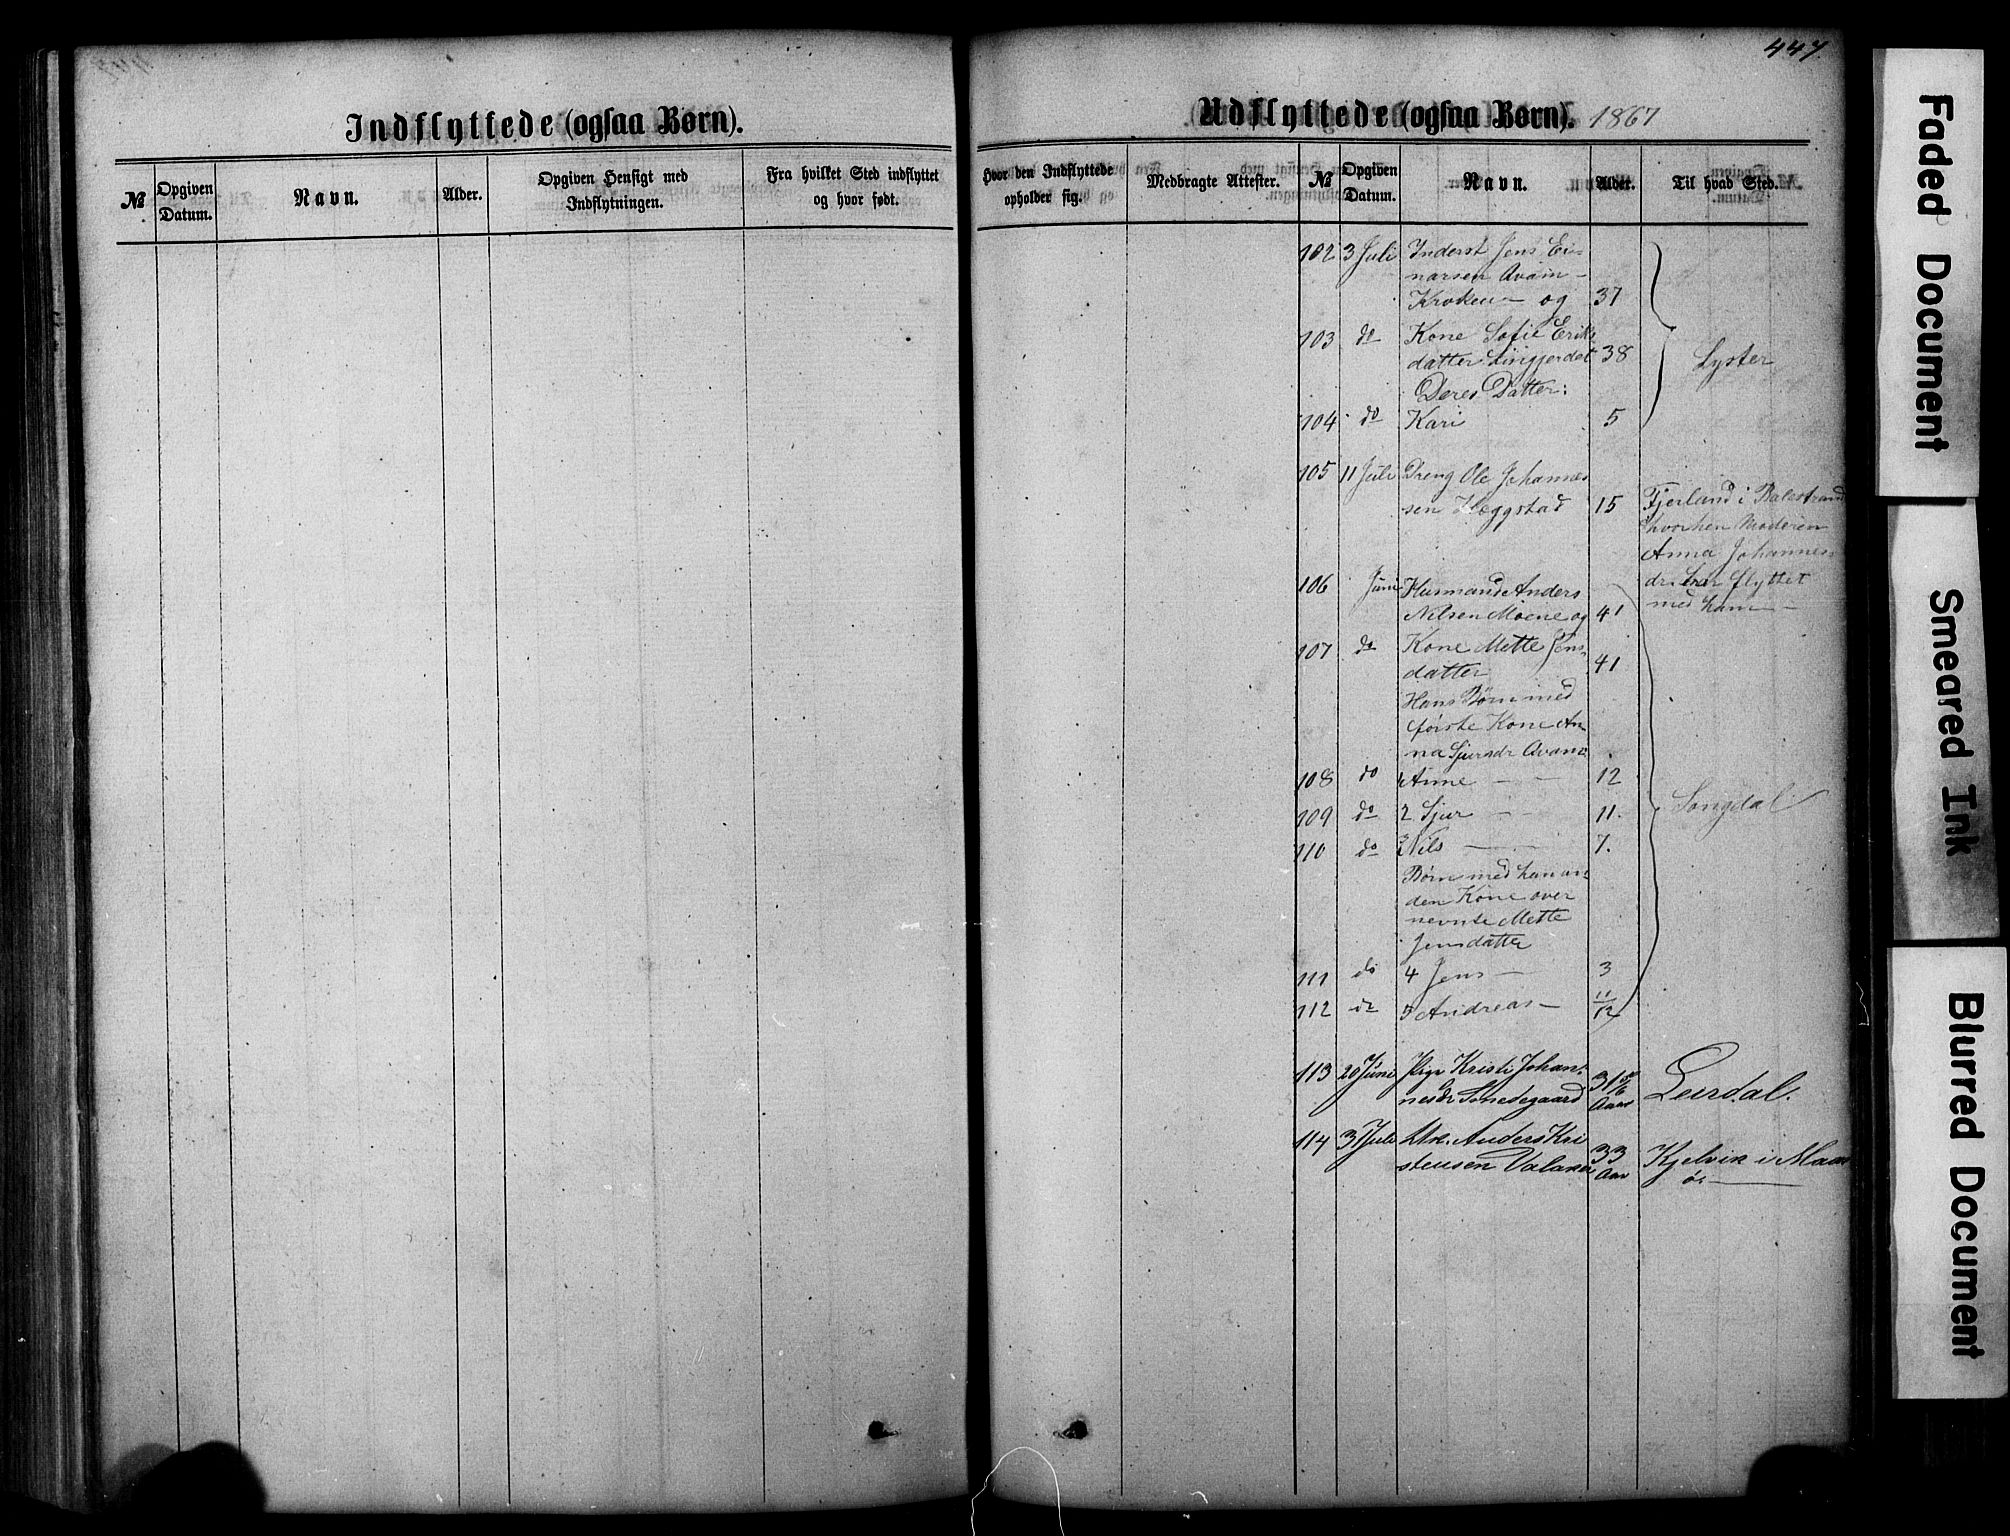 447.
Indflyttede (ogsaa Børn).
№ Opgiven Datum. Navn. Alder. Opgiven Hensigt med Indflytningen. Fra hvilket Sted indflyttet og hvor født.
Udflyttede (ogsaa Børn). 1867
Hvor den Indflyttede opholder sig. Medbragte Attester. № Opgiven Datum. Navn. Alder. Til hvad Sted.
102 3 Juli Inderst Jens Ei-
narsen Avam-
Kroken og 37
103 do Kone Sofie Eriks
datter 38 Lyster
Deres Datter:
104 do Kari 5
105 11 Juli Dreng Ole Johannes
sen Heggstad 15 Fjerland i Balestrand
hvorhen Moderen
Anna Johannes-
dr. har flyttet
med ham -
106 Juni Husmand Anders
Nilsen Moene og 41
107 do Kone Mette Jens
datter 41
Hans Børn med
første Kone An-
na Sjursdr Avam
108 do 1 Anne - - 12
109 do 2 Sjur - - 11. Songdal
110 do 3 Nils - 7.
Børn med han an-
den Kone over
nevnte Mette
Jensdatter
111 do 4 Jens - 3
112 do 5 Andreas - 11/12
113 20 Juni Pige Kristi Johan-
nesdr Smedegaard 31 5/6 Aar Leirdal.
114 3 Juli Anders Kri
stensen 33 Aar Kjelvik i Maas
ø. -
Faded Document
Smeared Ink
Blurred Document